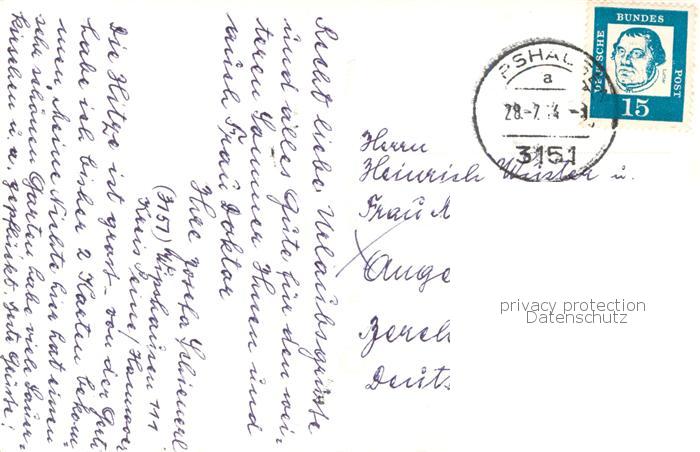 Recht liebe Urlaubsgrüsse
und alles Gute für den wei-
teren Sommer Ihnen und
auch Frau Doktor
Ihre Josefa
(3151) Wipshausen 111
Kreis Peine/Hannover
Die Hitze ist gross - von der
habe ich bisher 2 Karten bekom
men, Meine Nichte hier hat einen
sehr schönen Garten habe viele Sauer-
kirschen u. a. gepflückt. Gute Grüsse!
DEUTSCHE
BUNDES
POST
15
PSHAUS
a
28.-7.
3151
Herrn
Heinrich Wüster u.
Frau
Ange
Berch
Deuts
privacy protection
Datenschutz